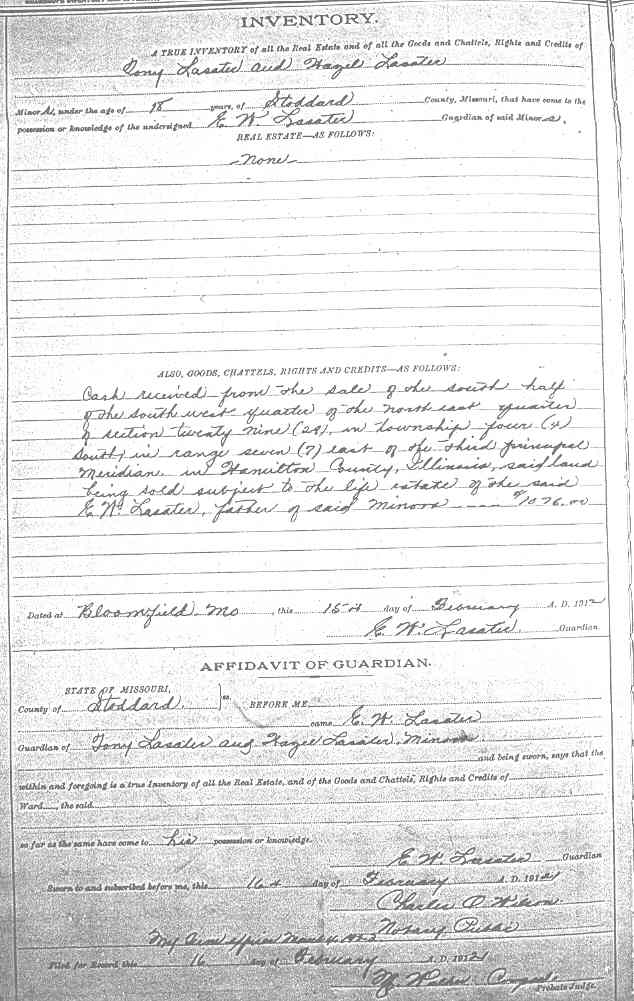 INVENTORY.
A TRUE INVENTORY of all the Real Estate and of all the Goods and Chattels, Rights and Credits of
Tony Lasater and Hazel Lasater
Minors, under the age of 18 years, of Stoddard County, Missouri, that have come to the
possession or knowledge of the undersigned E. W. Lasater Guardian of said Minors.
REAL ESTATE—AS FOLLOWS:
None
ALSO, GOODS, CHATTELS, RIGHTS AND CREDITS—AS FOLLOWS:
Cash received from the sale of the south half
of the south west quarter of the north east quarter
of section twenty nine (29), in township four (4)
south, in range seven (7) east of the third principal
Meridian, in Hamilton County, Illinois, said land
being sold subject to the life estate of the said
E. W. Lasater, father of said Minors --- $1076.00
Dated at Bloomfield Mo, this 15th day of February A. D. 1912
E. W. Lasater. Guardian.
AFFIDAVIT OF GUARDIAN.
STATE OF MISSOURI,
County of Stoddard. } ss. BEFORE ME,
came E. W. Lasater
Guardian of Tony Lasater and Hazel Lasater, Minors
and being sworn, says that the
within and foregoing is a true Inventory of all the Real Estate, and of the Goods and Chattels, Rights and Credits of
Ward, the said
so far as the same have come to his possession or knowledge.
E. W. Lasater Guardian
Sworn to and subscribed before me, this 16th day of February A. D. 1912
Charles O. Wilson
Notary Public
My expires March
Filed for Record this 16 day of February A. D. 1912
Probate Judge.